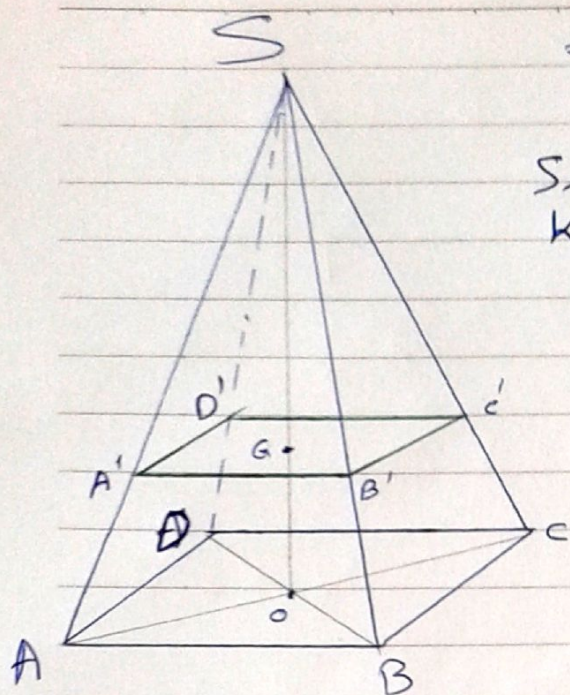 S
D' C'
G
A' B'
D C
O
A B